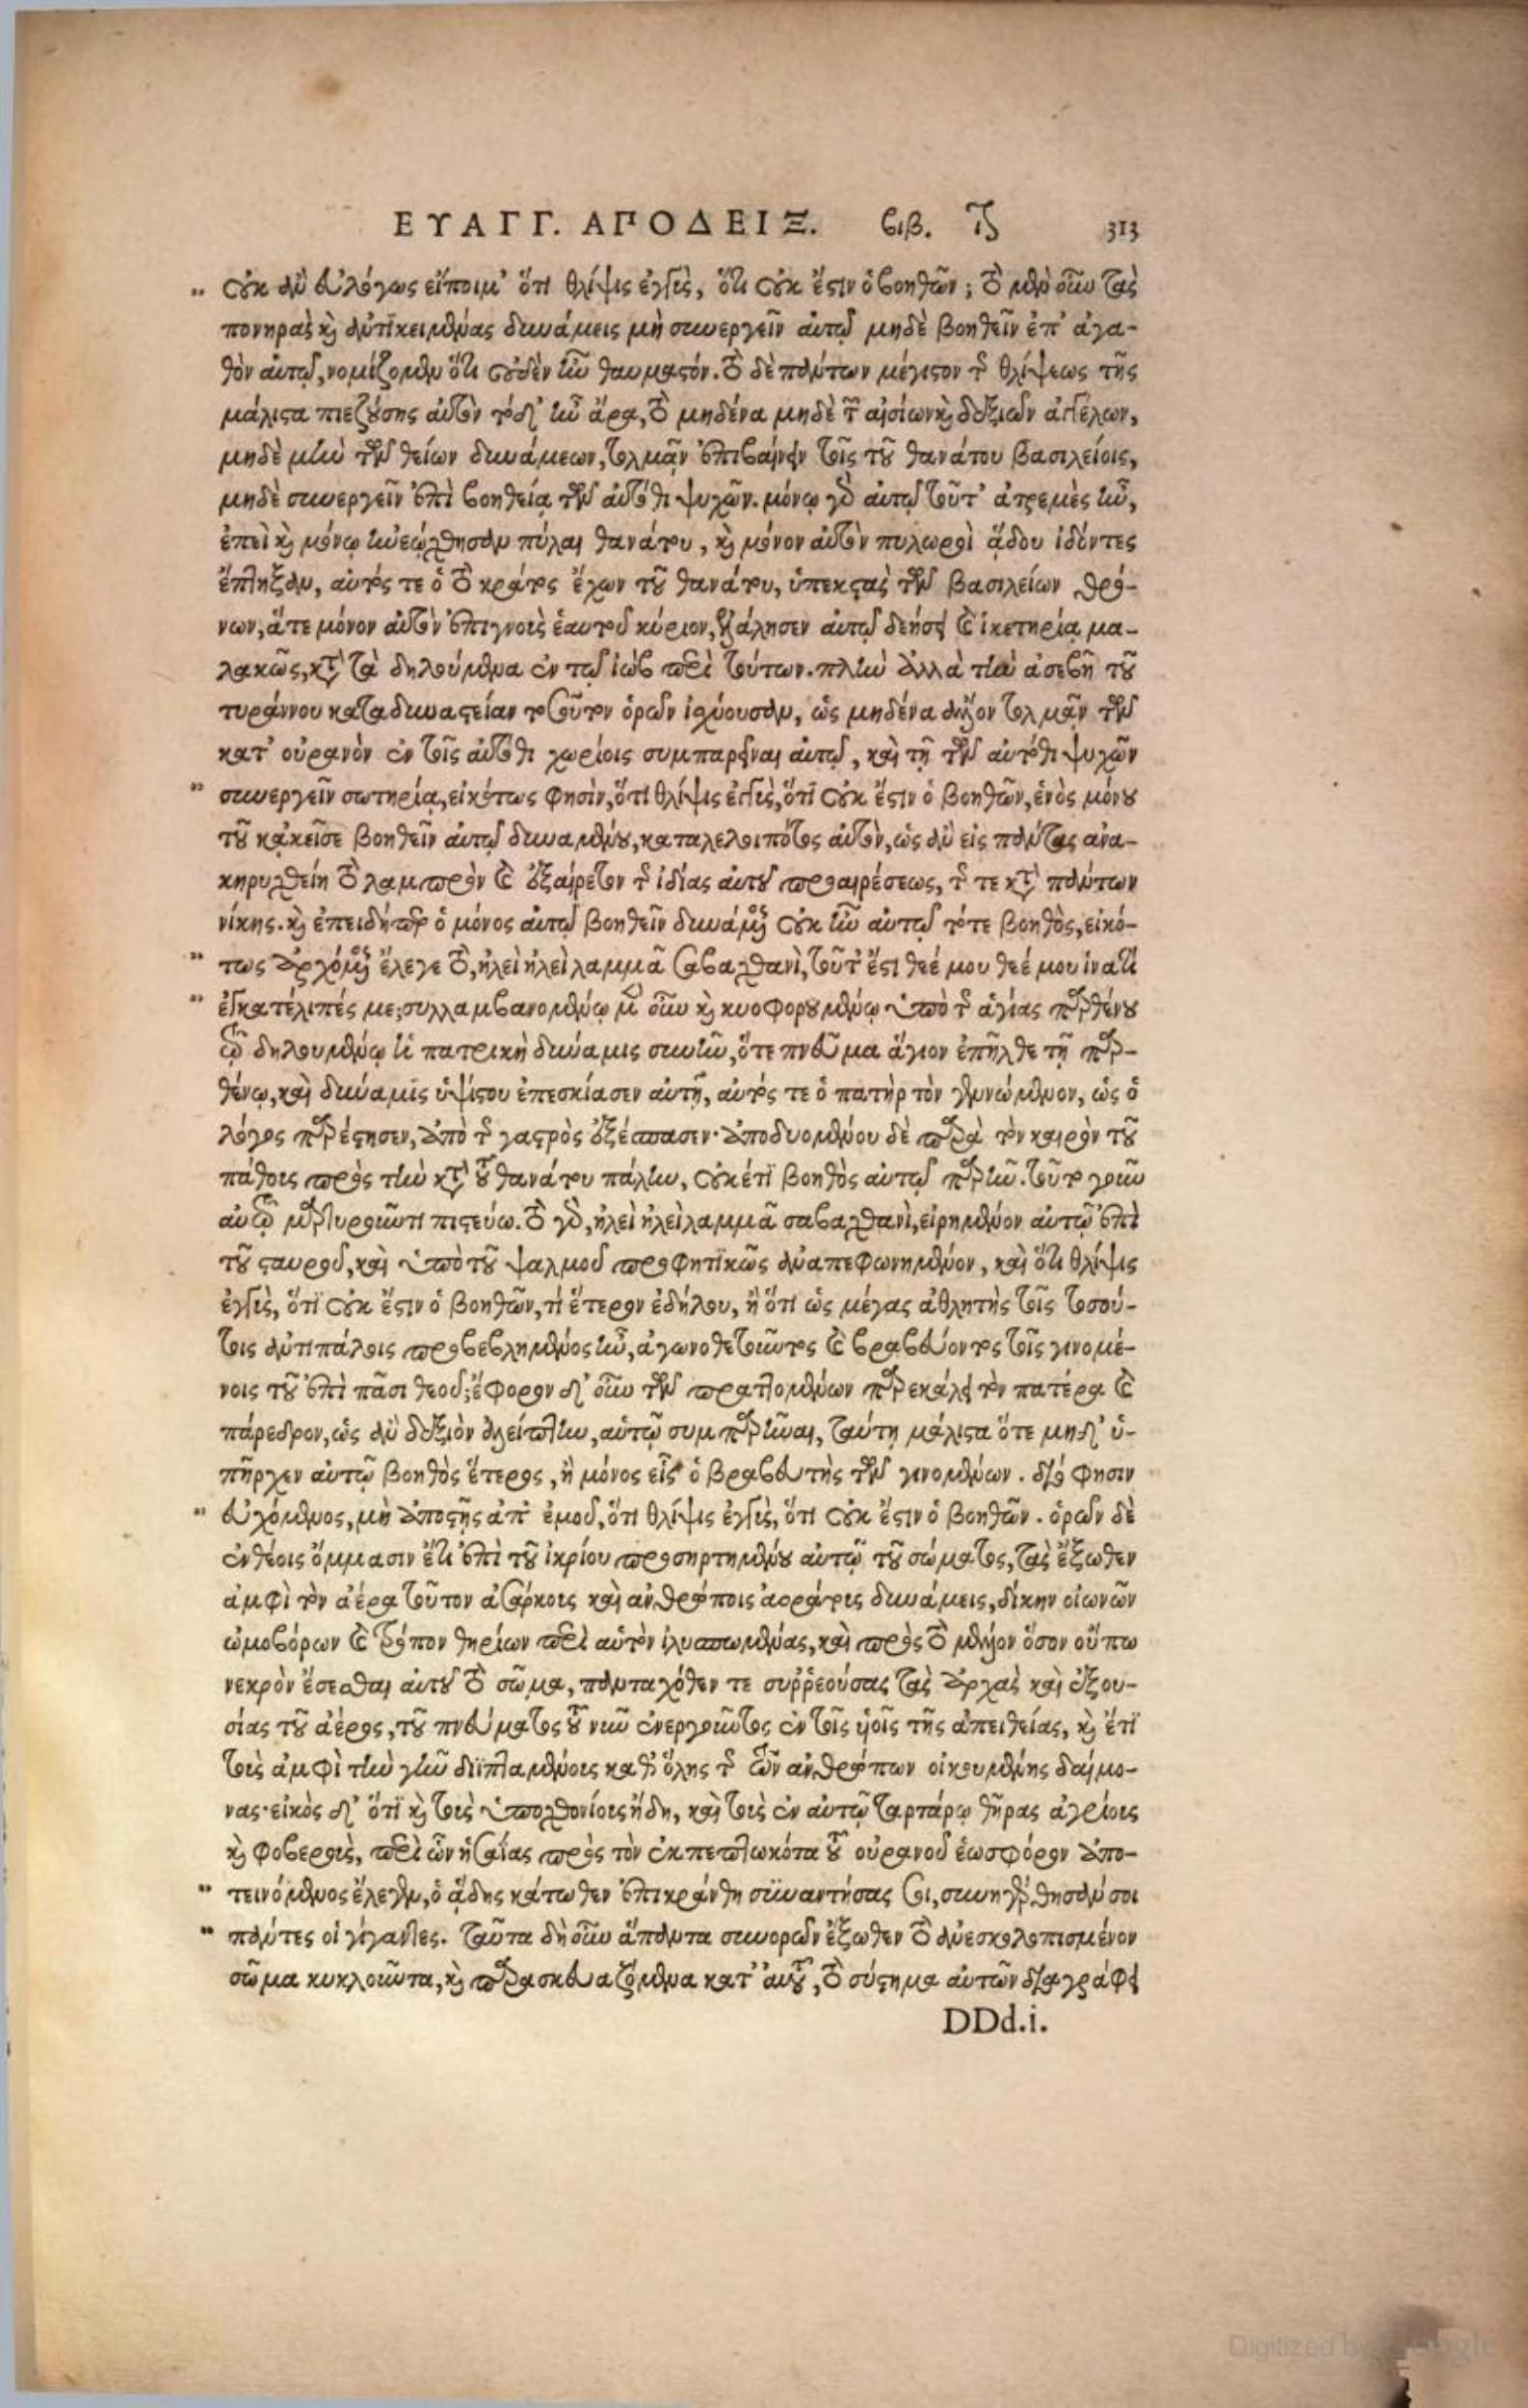 ΕΥΑΓΓ. ΑΠΟΔΕΙΞ. βιβ. ιζ 313
οὐκ ἂν εὐλόγως εἴποιμ' ὅτι θλίψις ἐγγὺς, ὅτι οὐκ ἔστιν ὁ βοηθῶν; τὸ μὲν οὖν τὰς
πονηρὰς καὶ ἀντικειμένας δυνάμεις μὴ συνεργεῖν αὐτῷ μηδὲ βοηθεῖν ἐπ' ἀγα-
θὸν αὐτῷ, νομίζομεν ὅτι οὐδὲν ἦν θαυμαστόν. τὸ δὲ πάντων μέγιστον τῆς θλίψεως τῆς
μάλιστα πιεζούσης αὐτὸν τόδ' ἦν ἄρα, τὸ μηδένα μηδὲ τῶν αἰσίων καὶ δεξιῶν ἀγγέλων,
μηδὲ μίαν τῶν θείων δυνάμεων, τολμᾶν ἐπιβαίνειν τοῖς τοῦ θανάτου βασιλείοις,
μηδὲ συνεργεῖν ἐπὶ βοηθείᾳ τῶν αὐτόθι ψυχῶν. μόνῳ γὰρ αὐτῷ τοῦτ' ἀτρεμὲς ἦν,
ἐπεὶ καὶ μόνῳ ἠνεῴχθησαν πύλαι θανάτου, καὶ μόνον αὐτὸν πυλωροὶ ᾅδου ἰδόντες
ἔπτηξαν, αὐτός τε ὁ τὸ κράτος ἔχων τοῦ θανάτου, ὑπεκστὰς τῶν βασιλείων θρό-
νων, ἅτε μόνον αὐτὸν ἐπιγνοὺς ἑαυτοῦ κύριον, ἐλάλησεν αὐτῷ δεήσει καὶ ἱκετηρίᾳ μα-
λακῶς, κατὰ τὰ δηλούμενα ἐν τῷ ἰὼβ περὶ τούτων. πλὴν ἀλλὰ τὴν ἀσεβῆ τοῦ
τυράννου καταδυναστείαν τοσοῦτον ὁρῶν ἰσχύουσαν, ὡς μηδένα ἄλλον τολμᾶν τῶν
κατ' οὐρανὸν ἐν τοῖς αὐτόθι χωρίοις συμπαρεῖναι αὐτῷ, καὶ τῇ τῶν αὐτόθι ψυχῶν
συνεργεῖν σωτηρίᾳ, εἰκότως φησὶν, ὅτι θλίψις ἐγγὺς, ὅτι οὐκ ἔστιν ὁ βοηθῶν, ἑνὸς μόνου
τοῦ κἀκεῖσε βοηθεῖν αὐτῷ δυναμένου, καταλελοιπότος αὐτὸν, ὡς ἂν εἰς πάντας ἀνα-
κηρυχθείη τὸ λαμπρὸν καὶ ἐξαίρετον τῆς ἰδίας αὐτοῦ προαιρέσεως, τῆς τε κατὰ πάντων
νίκης. καὶ ἐπειδήπερ ὁ μόνος αὐτῷ βοηθεῖν δυνάμενος οὐκ ἦν αὐτῷ τότε βοηθὸς, εἰκό-
τως ἀρχόμενος ἔλεγε τὸ, ἠλεὶ ἠλεὶ λαμμᾶ σαβαχθανὶ, τοῦτ' ἔστι θεέ μου θεέ μου ἱνατί
ἐγκατέλιπές με; συλλαμβανομένῳ μὲν οὖν καὶ κυοφορουμένῳ ὑπὸ τῆς ἁγίας παρθένου
τῷ δηλουμένῳ ἡ πατρικὴ δύναμις συνῆν, ὅτε πνεῦμα ἅγιον ἐπῆλθε τῇ παρ-
θένῳ, καὶ δύναμις ὑψίστου ἐπεσκίασεν αὐτῇ, αὐτός τε ὁ πατὴρ τὸν γεννώμενον, ὡς ὁ
λόγος παρέστησεν, ἀπὸ τῆς γαστρὸς ἐξέσπασεν· ἀποδυομένου δὲ παρὰ τὸν καιρὸν τοῦ
πάθους πρὸς τὴν κατὰ τοῦ θανάτου πάλην, οὐκέτι βοηθὸς αὐτῷ παρῆν. τοῦτο γοῦν
αὐτῷ μαρτυροῦντι πιστεύω. τὸ γὰρ, ἠλεὶ ἠλεὶ λαμμᾶ σαβαχθανὶ, εἰρημένον αὐτῷ ἐπὶ
τοῦ σταυροῦ, καὶ ὑπὸ τοῦ ψαλμοῦ προφητικῶς ἀναπεφωνημένον, καὶ ὅτι θλίψις
ἐγγὺς, ὅτι οὐκ ἔστιν ὁ βοηθῶν, τί ἕτερον ἐδήλου, ἢ ὅτι ὡς μέγας ἀθλητὴς τοῖς τοσού-
τοις ἀντιπάλοις προβεβλημένος ἦν, ἀγωνοθετοῦντος καὶ βραβεύοντος τοῖς γινομέ-
νοις τοῦ ἐπὶ πᾶσι θεοῦ; ἔφορον δ' οὖν τῶν πραττομένων παρεκάλει τὸν πατέρα καὶ
πάρεδρον, ὡς ἂν δεξιὸν ἀλείπτην, αὐτῷ συμπαρεῖναι, ταύτῃ μάλιστα ὅτε μηδ' ὑ-
πῆρχεν αὐτῷ βοηθὸς ἕτερος, ἢ μόνος εἷς ὁ βραβευτὴς τῶν γινομένων. διό φησιν
εὐχόμενος, μὴ ἀποστῇς ἀπ' ἐμοῦ, ὅτι θλίψις ἐγγὺς, ὅτι οὐκ ἔστιν ὁ βοηθῶν. ὁρῶν δὲ
ἐνθέοις ὄμμασιν ἔτι ἐπὶ τοῦ ἰκρίου προσηρτημένου αὐτῷ τοῦ σώματος, τὰς ἔξωθεν
ἀμφὶ τὸν ἀέρα τοῦτον ἀσάρκους καὶ ἀνθρώποις ἀοράτους δυνάμεις, δίκην οἰωνῶν
ὠμοβόρων καὶ τρόπον θηρίων περὶ αὐτὸν ἰλυσπωμένας, καὶ πρὸς τὸ μέλλον ὅσον οὔπω
νεκρὸν ἔσεσθαι αὐτοῦ τὸ σῶμα, πανταχόθεν τε συῤῥεούσας τὰς ἀρχὰς καὶ ἐξου-
σίας τοῦ ἀέρος, τοῦ πνεύματος τοῦ νῦν ἐνεργοῦντος ἐν τοῖς υἱοῖς τῆς ἀπειθείας, καὶ ἔτι
τοὺς ἀμφὶ τὴν γῆν διϊπταμένους καθ' ὅλης τῆς τῶν ἀνθρώπων οἰκουμένης δαίμο-
νας· εἰκὸς δ' ὅτι καὶ τοὺς ὑποχθονίους ἤδη, καὶ τοὺς ἐν αὐτῷ ταρτάρῳ θῆρας ἀγρίους
καὶ φοβεροὺς, περὶ ὧν ἡσαΐας πρὸς τὸν ἐκπεπτωκότα τοῦ οὐρανοῦ ἑωσφόρον ἀπο-
τεινόμενος ἔλεγεν, ὁ ᾅδης κάτωθεν ἐπικράνθη συναντήσας σοι, συνηγέρθησάν σοι
πάντες οἱ γίγαντες. ταῦτα δὴ οὖν ἅπαντα συνορῶν ἔξωθεν τὸ ἀνεσκολοπισμένον
σῶμα κυκλοῦντα, καὶ παρασκευαζόμενα κατ' αὐτοῦ, τὸ σύστημα αὐτῶν διαγράφει
DDd.i.
Digitized by Google